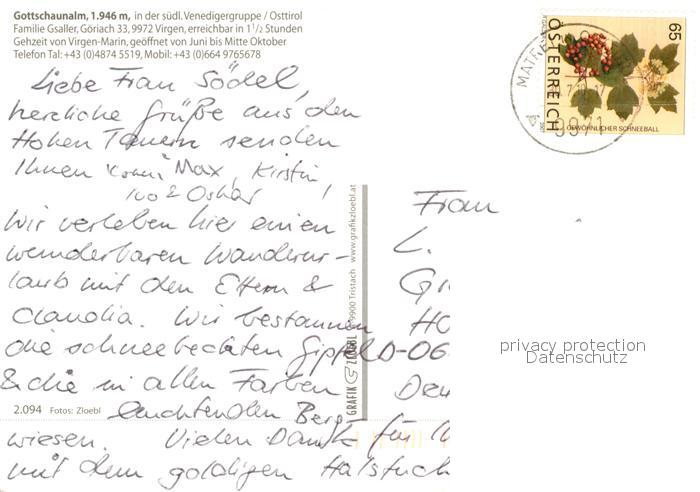 Gottschaunalm, 1.946 m, in der südl. Venedigergruppe / Osttirol
Familie Gsaller, Göriach 33, 9972 Virgen, erreichbar in 1 1/2 Stunden
Gehzeit von Virgen-Marin, geöffnet von Juni bis Mitte Oktober
Telefon Tal: +43 (0)4874 5519, Mobil: +43 (0)664 9765678
Liebe Frau Södel,
herzliche Grüße aus den
Hohen Tauern senden
Ihnen Max, Kirstin,
Ivo & Oskar
Wir verleben hier einen
wunderbaren Wanderur-
laub mit den Eltern &
Claudia. Wir bestaunen
die schneebedeckten Gipfel
& die in allen Farben
leuchtenden Berg
wiesen. Vielen Dank für
mit dem goldigen Halstuch
2.094 Fotos: Zloebl
GRAFIK ZLOEBL 9900 Tristach www.grafikzloebl.at
Frau
L.
G
HO
D-06
ÖSTERREICH
65
GEWÖHNLICHER SCHNEEBALL
2007
MATREI
9971
privacy protection
Datenschutz